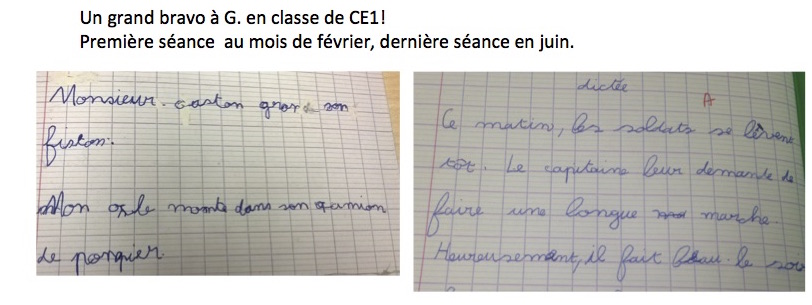 Un grand bravo à G. en classe de CE1!
Première séance au mois de février, dernière séance en juin.
Monsieur. caston gronde son
fiston.
Mon oxle monte dans son qamion
de ponpier.
dictée
A
Ce matin, les soldats se lèvent
tôt. Le capitaine leur demande de
faire une longue marche.
Heureusement, il fait beau. le